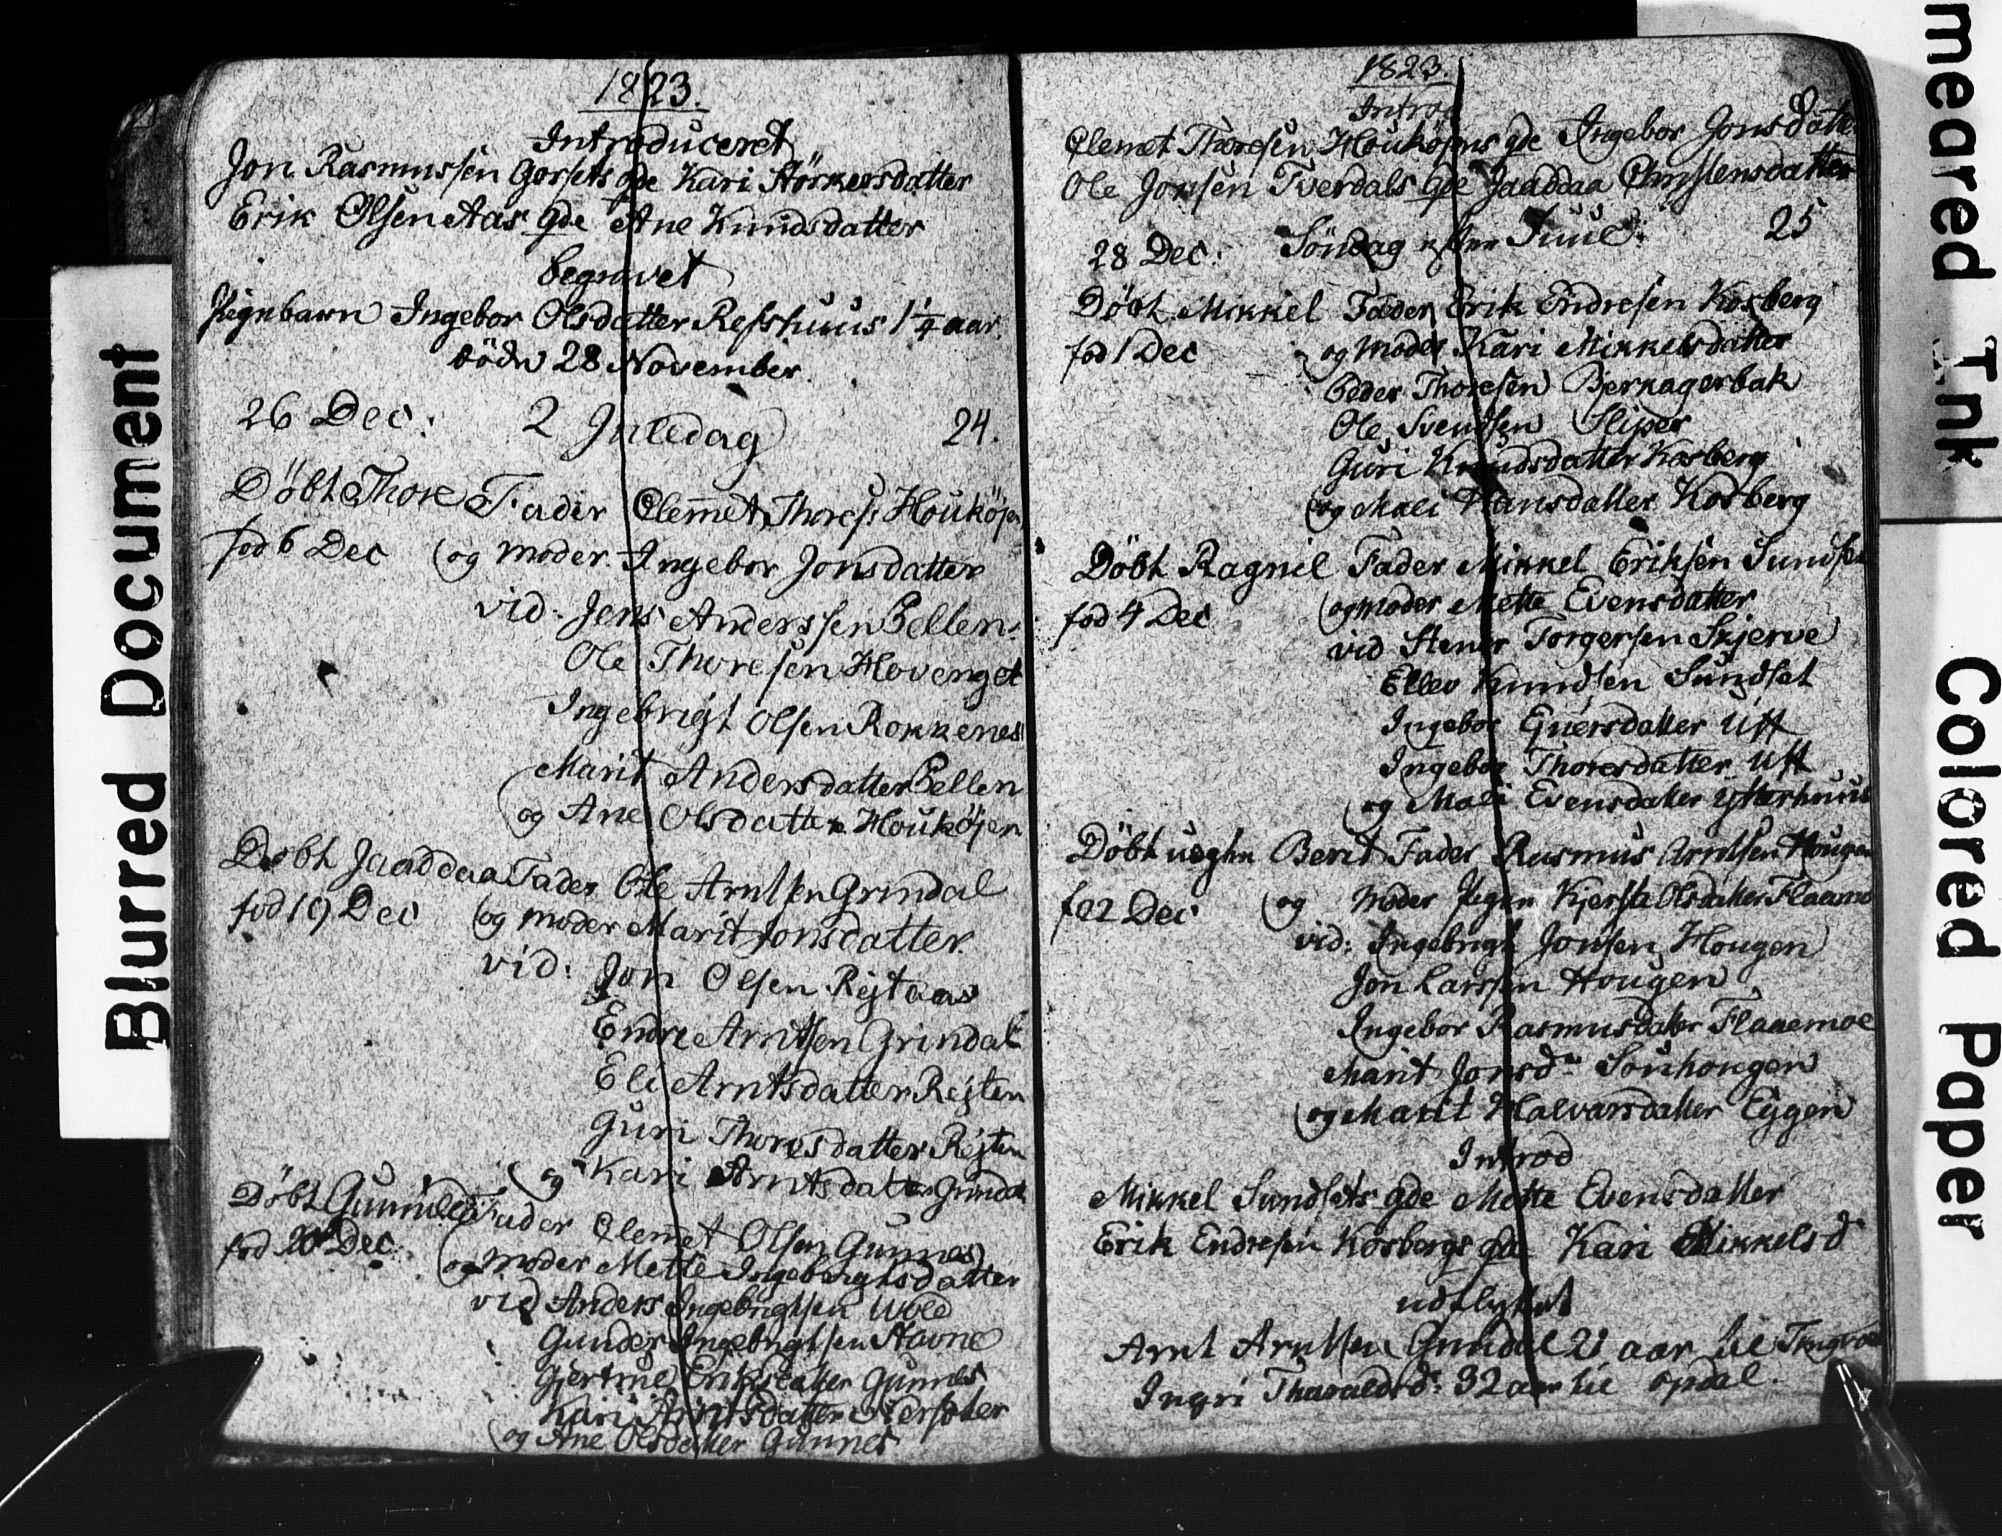 1823.
Introduceret
Jon Rasmussen Gorsets qde Kari Störkersdatter
Erik Olsen Aas qde Ane Knudsdatter
begravet
Pigebarn Ingebor Olsdatter Refshuus 1 1/4 aar
död 28 November.
26 Dec: 2 Juledag 24.
Döbt Thore Fader Clemet Thores: Houköjen
fod 6 Dec og Moder Ingebor Jonsdatter
vid: Jens Anderssen Pellen
Ole Thoresen Hovenget
Ingebrigt Olsen Rokkenes
Marit Andersdatter Pellen
og Ane Olsdatter Houköjen
Döbt Jaaddaa Fader Ole Arntsen Grindal
fod 19 Dec og Moder Marit Jonsdatter
vid: Jon Olsen Rejtaas
Endre Arntsen Grindal
Eli Arntsdatter Rejten
Guri Thoresdatter Rejten
og Kari Arntsdatter Grindal
Döbt Gunnild Fader Clemet Olsen Gunnes
fod 20 Dec: og Moder Mette Ingebrigtsdatter
vid Anders Ingebrigtsen Wold
Gunder Ingebrigtsen Stavne
Gjertrud Eriksdatter Gunnes
Kari Arntsdatter
og Ane Olsdatter Gunnes
1823.
Introd
Clemet Thoresen Houköjens qde Ingebor Jonsdatter
Ole Jonsen Tverdals qde Jaaddaa Christensdatter
28 Dec: Söndag efter Juul: 25
Döbt Mikkel Fader Erik Endresen Kosberg
fod 1 Dec og Moder Kari Mikkelsdatter
Peder Thoresen Berkagerbak
Ole Svendsen Sliper
Guri Knudsdatter Kosberg
og Mali Hansdatter Kosberg
Döbt Ragnil Fader Mikkel Eriksen Sundset
fod 4 Dec og Moder Mette Evensdatter
vid Stener Torgersen Skjerve
Ellev Knudsen Sundset
Ingebor Ejnersdatter Uft
Ingebor Thoresdatter Uft
og Mali Evensdatter Ytterhuus
Döbt uegtn Berit Fader Rasmus Arntsen Hougen
fod 2 Dec og Moder Pigen Kjersti Olsdatter Flaamo
vid: Ingebrigt Jonsen Hougen
Jon Larssen Hougen
Ingebor Rasmusdatter Flaaemoe
Marit Jonsdr Souhougen
og Marit Halvarsdatter Eggen
Introd
Mikkel Sundsets qde Mette Evensdatter
Erik Endresen Kosbergs qde Kari Mikkelsd
udflyttet
Arnt Arntsen Grindal 21 aar til
Ingri Tharaldsdr: 32 aar til Opdal.
Blurred Document
meared Ink
Colored Paper